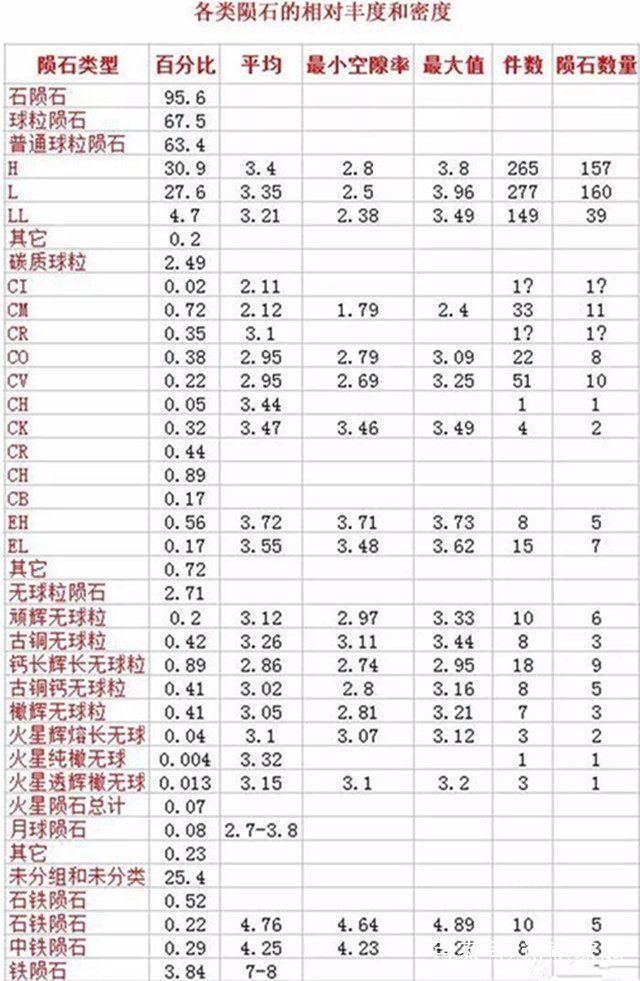 各类陨石的相对丰度和密度
陨石类型 百分比 平均 最小空隙率 最大值 件数 陨石数量
石陨石 95.6
球粒陨石 67.5
普通球粒陨石 63.4
H 30.9 3.4 2.8 3.8 265 157
L 27.6 3.35 2.5 3.96 277 160
LL 4.7 3.21 2.38 3.49 149 39
其它 0.2
碳质球粒 2.49
CI 0.02 2.11 1? 1?
CM 0.72 2.12 1.79 2.4 33 11
CR 0.35 3.1 1? 1?
CO 0.38 2.95 2.79 3.09 22 8
CV 0.22 2.95 2.69 3.25 51 10
CH 0.05 3.44 1 1
CK 0.32 3.47 3.46 3.49 4 2
CR 0.44
CH 0.89
CB 0.17
EH 0.56 3.72 3.71 3.73 8 5
EL 0.17 3.55 3.48 3.62 15 7
其它 0.72
无球粒陨石 2.71
顽辉无球粒 0.2 3.12 2.97 3.33 10 6
古铜无球粒 0.42 3.26 3.11 3.44 8 3
钙长辉长无球粒 0.89 2.86 2.74 2.95 18 9
古铜钙无球粒 0.41 3.02 2.8 3.16 8 5
橄辉无球粒 0.41 3.05 2.81 3.21 7 3
火星辉熔长无球 0.04 3.1 3.07 3.12 3 2
火星纯橄无球 0.004 3.32 1 1
火星透辉橄无球 0.013 3.15 3.1 3.2 3 1
火星陨石总计 0.07
月球陨石 0.08 2.7-3.8
其它 0.23
未分组和未分类 25.4
石铁陨石 0.52
石铁陨石 0.22 4.76 4.64 4.89 10 5
中铁陨石 0.29 4.25 4.23 3
铁陨石 3.84 7-8